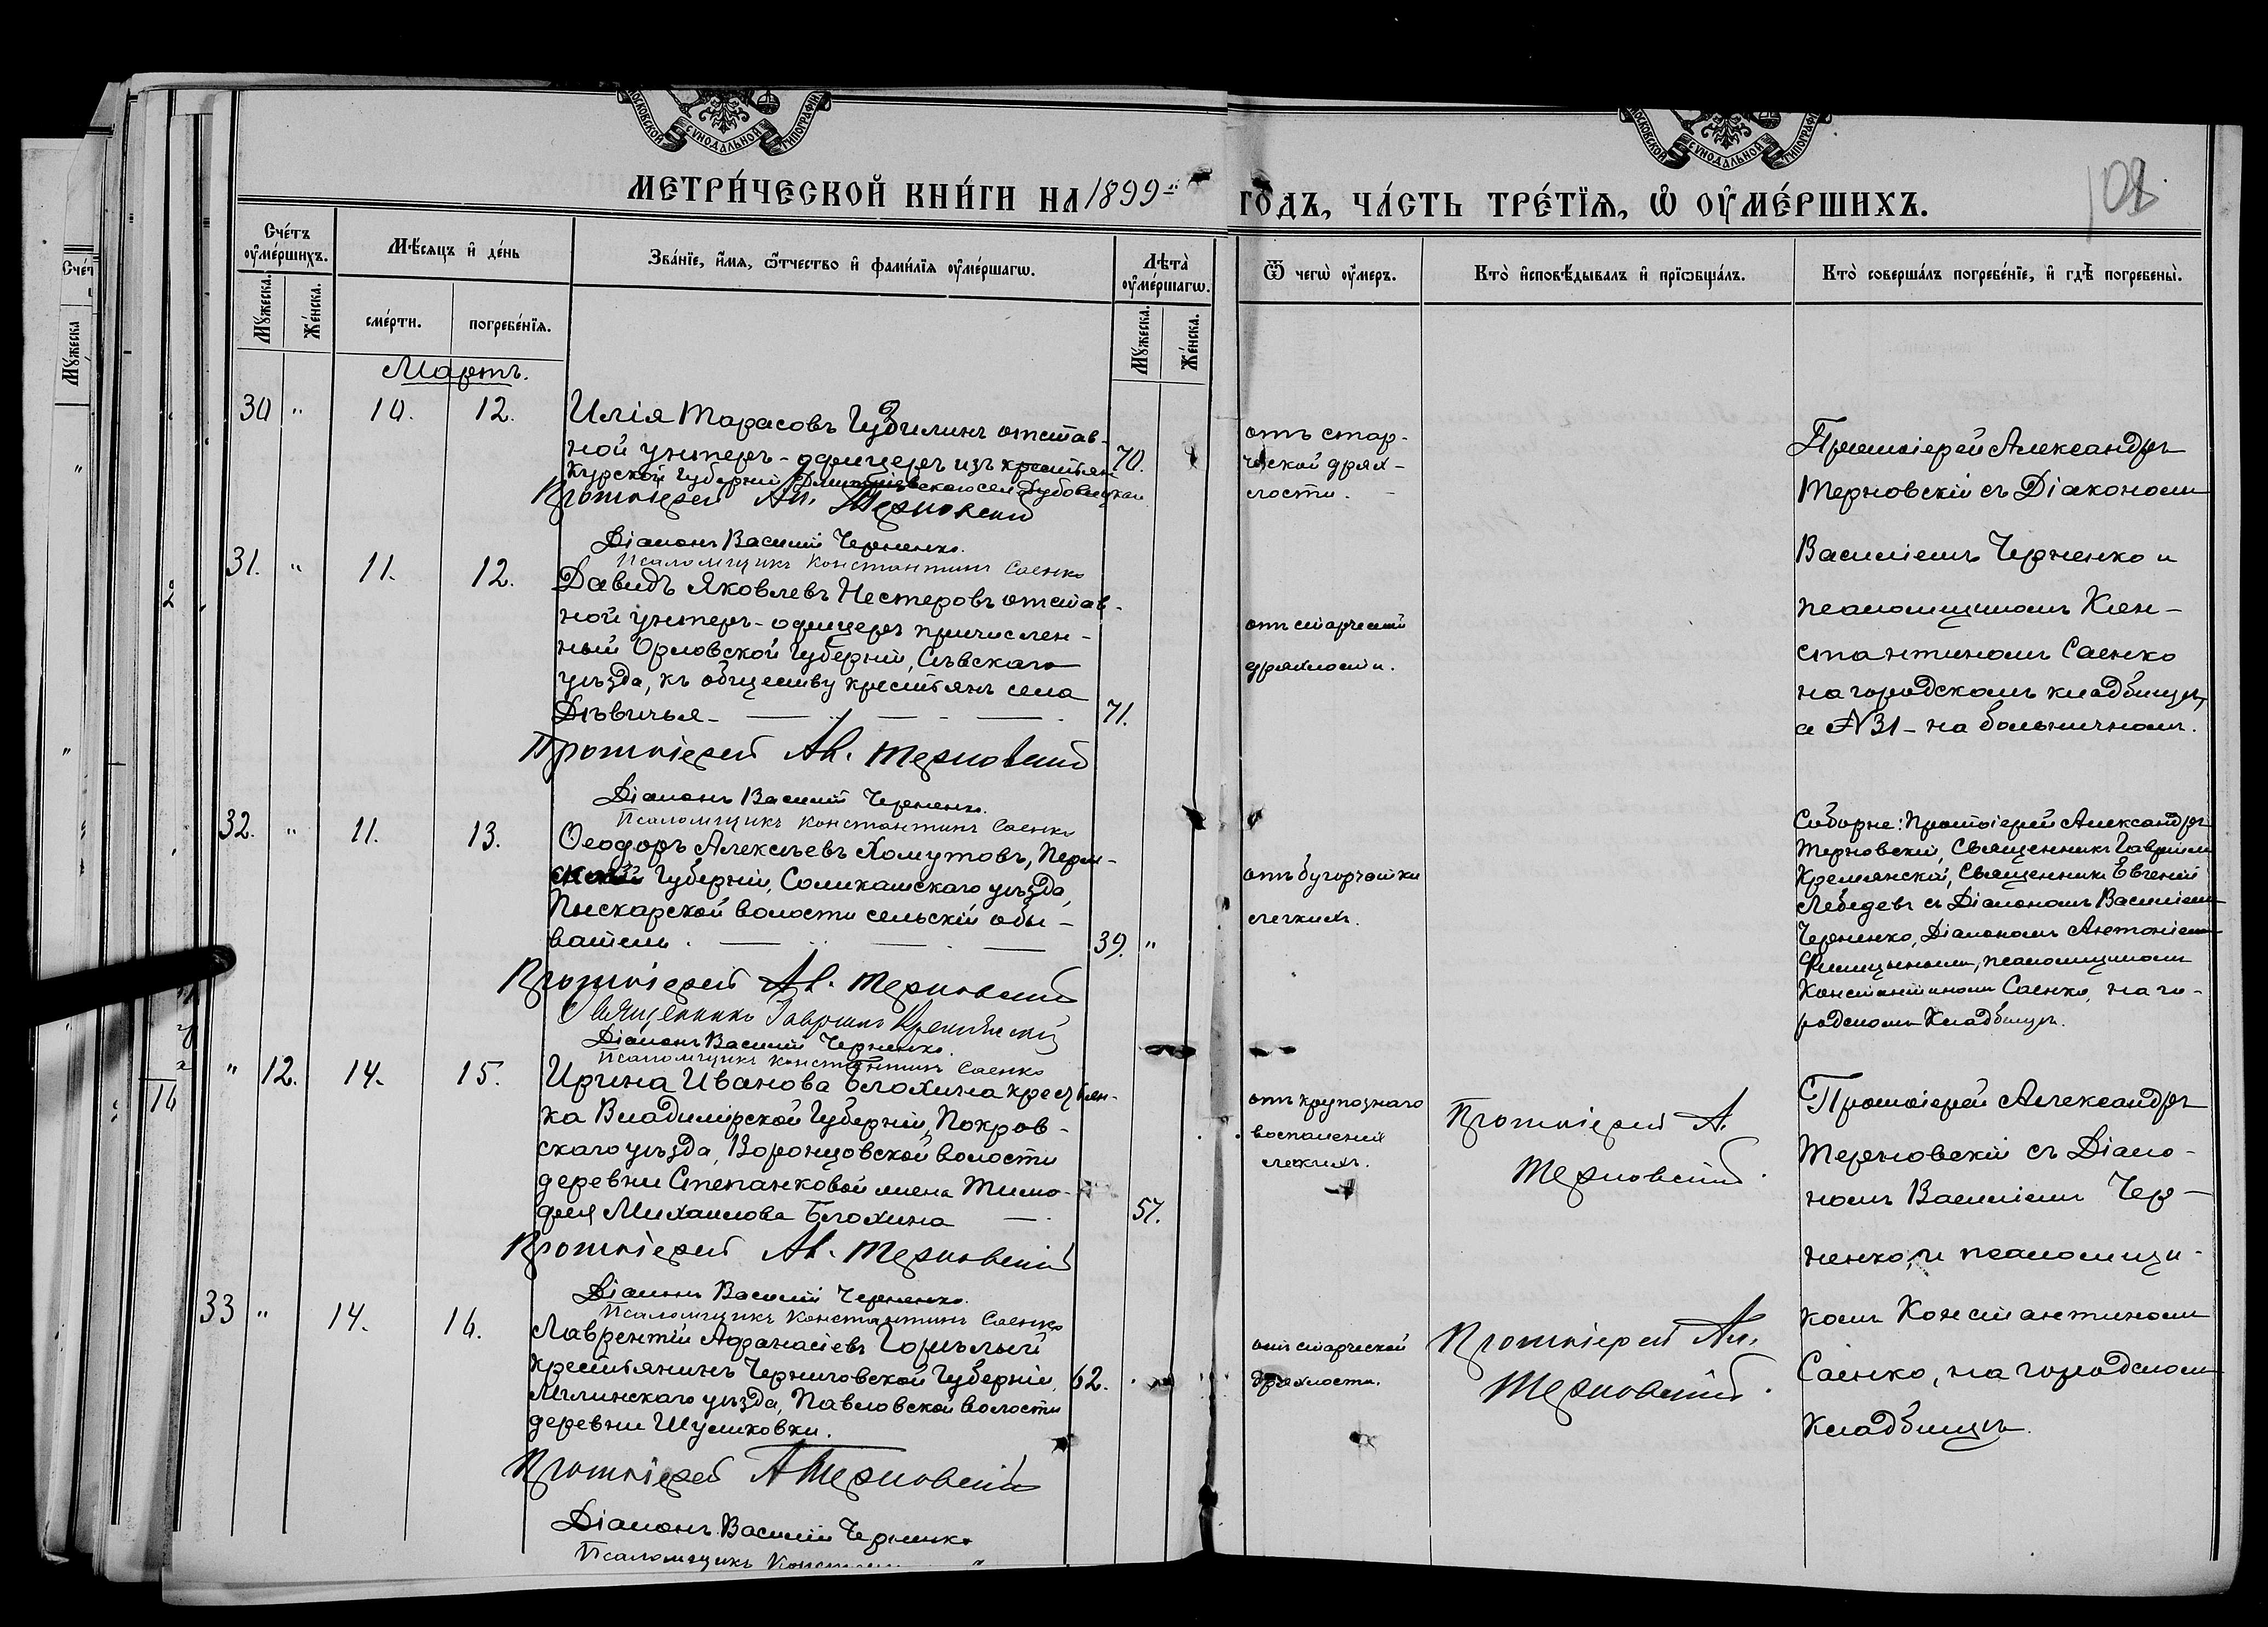 МОСКОВСКОЙ СѴНОДАЛЬНОЙ ТИПОГРАФІИ
МОСКОВСКОЙ СѴНОДАЛЬНОЙ ТИПОГРАФІИ
МЕТРИ́ЧЕСКОЙ КНИ́ГИ НА 1899 ГО́ДЪ, ЧА́СТЬ ТРЕ́ТЇѦ, Ѡ ОУ҆МЕ́РШИХЪ.
108
Сче́тъ оу҆ме́ршихъ.
Мꙋ́жеска.
Же́нска.
Мѣ́сѧцъ и҆ де́нь
сме́рти.
погребе́нїѧ.
Зва́нїе, и҆́мѧ, ѻ҆́тчество и҆ фами́лїѧ оу҆ме́ршагѡ.
Лѣ́та оу҆ме́ршагѡ.
Мꙋ́жеска.
Же́нска.
Ѿ чегѡ̀ оу҆́меръ.
Кто̀ и҆сповѣ́дывалъ и҆ прїѡбща́лъ.
Кто̀ соверша́лъ погребе́нїе, и҆ гдѣ̀ погребены̀.
Мартъ.
30 " 10. 12. Илія Тарасовъ Губилинъ отстав-
ной унтеръ-офицеръ изъ крестьян 70.
Курской Губерніи Дмитріевскаго
Протоіерей Ал. Терновский
Діаконъ Василій Черненко.
Псаломщикъ Константинъ Саенко
отъ стар-
ческой дрях-
лости.
Протоіерей Александръ
Терновскій съ Діакономъ
Василіемъ Черненко и
псаломщикомъ Кон-
стантиномъ Саенко
на городскомъ кладбищѣ,
а №31 - на больничномъ.
31. " 11. 12. Давидъ Яковлевъ Нестеровъ отстав-
ной унтеръ-офицеръ причислен-
ный Орловской Губерніи, Сѣвскаго
уѣзда, къ обществу крестьянъ села
Дѣвичья 71.
Протоіерей Ал. Терновский
Діаконъ Василій Черненко.
Псаломщикъ Константинъ Саенко
отъ старческой
дряхлости.
32. " 11. 13. Ѳеодоръ Алексѣевъ Хомутовъ, Перм-
ской Губерніи, Соликамскаго уѣзда,
Пыскарской волости сельскій обы-
ватель. 39. "
Протоіерей Ал. Терновский
Священникъ Гавріилъ Кремянскій
Діаконъ Василій Черненко.
Псаломщикъ Константинъ Саенко
отъ бугорчатки
легкихъ.
Соборне: Протоіерей Александръ
Терновскій, Священникъ Гавріилъ
Кремянскій, Священникъ Евгеній
Лебедевъ съ Діакономъ Василіемъ
Черненко, Діакономъ Антоніемъ
псаломщикомъ
Константиномъ Саенко, на го-
родскомъ Кладбищѣ.
" 12. 14. 15. Ирина Иванова Блохина крестьян-
ка Владимірской Губерніи, Покров-
скаго уѣзда, Воронцовской волости
деревни Степанковой жена Тимо-
фея Михаилова Блохина 57.
Протоіерей Ал. Терновский
Діаконъ Василій Черненко.
Псаломщикъ Константинъ Саенко
отъ крупознаго
воспаленія
легкихъ.
Протоіерей А.
Терновский.
Протоіерей Александръ
Терновскій съ Діако-
номъ Василіемъ Чер-
ненко, и псаломщи-
комъ Константиномъ
Саенко, на городскомъ
Кладбищѣ.
33 " 14. 16. Лаврентій Афанасіевъ Горѣлый
крестьянинъ Черниговской Губерніи, 62.
Мглинскаго уѣзда, Павловской волости
деревни Шулаковки.
Протоіерей А Терновский
Діаконъ Василій Черненко
Псаломщикъ
отъ старческой
дряхлости.
Протоіерей Ал.
Терновский.